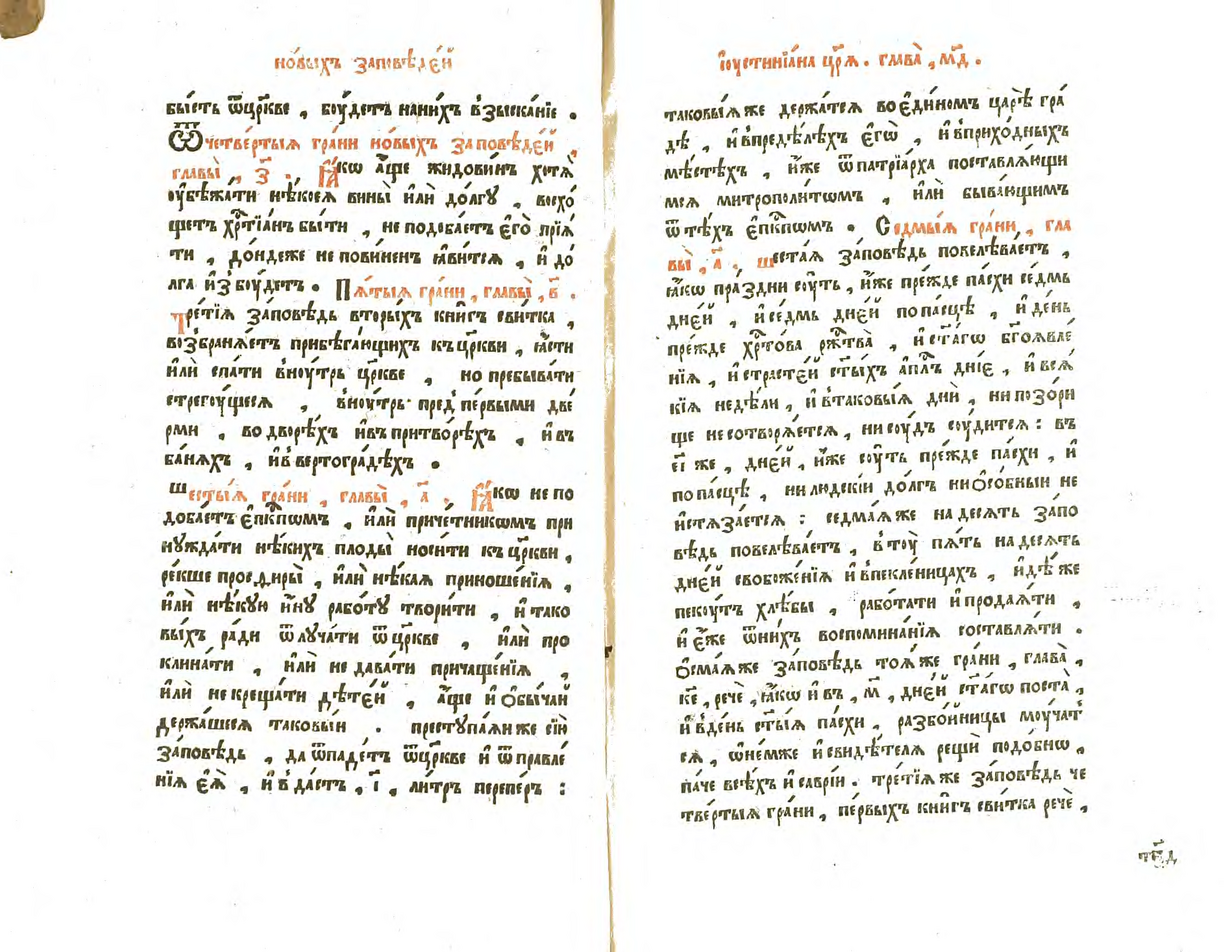 но́выхъ за́повѣде́й
бы́сть ѿцр҃кве , бꙋ́детъ нани́хъ в̾зыска́нїе .
Ѿ четве́ртыѧ гра́ни но́выхъ за́повѣде́й ,
главы̀ , з҃ . Ꙗ҆́кѡ а҆́ще жидови́нъ хотѧ̀
ᲂу҆бѣжа́ти нѣ́коеѧ вины̀ и҆лѝ до́лгꙋ , восхо́
щетъ хрⷭ҇тїа́нъ бы́ти , не подоба́етъ є҆го̀ прїѧ́
ти , до́ндеже не пови́ненъ ꙗ҆ви́тсѧ , и҆ до́
лга и҆з̾бꙋ́детъ . Пѧ́тыѧ гра́ни , главы̀ , в҃ .
тре́тїѧ за́повѣдь вторы́хъ кни́гъ сви́тка ,
возбранѧ́етъ прибѣга́ющихъ къ цр҃кви , ꙗ҆́сти
и҆лѝ спа́ти в̾нꙋ́трь цр҃кве , но пребыва́ти
стрегꙋ́щеесѧ , в̾нꙋ́трь пред̾ пе́рвыми две́
рми , во дворѣ́хъ и҆въ притво́рѣхъ , и҆ въ
ба́нѧхъ , и҆в̾ вертогра́дѣхъ .
шесты́ѧ гра́ни , главы̀ , а҃ . Ꙗ҆́кѡ не по
доба́етъ є҆пⷭ҇кпѡмъ , и҆лѝ приче́тникѡмъ при
нꙋжда́ти нѣ́кихъ плоды̀ носи́ти къ цр҃кви ,
ре́кше просфиры̀ , и҆лѝ нѣ́каѧ приноше́нїѧ ,
и҆лѝ нѣ́кꙋю и҆́нꙋ рабо́тꙋ твори́ти , и҆ тако
вы́хъ ра́ди ѿлꙋча́ти ѿ цр҃кве , и҆лѝ про
клина́ти , и҆лѝ не дава́ти причаще́нїѧ ,
и҆лѝ не креща́ти дѣте́й , а҆́ще и҆ ѻ҆бы́чай
держа́шесѧ таковы́й . престꙋпа́ѧй же сїю̀
за́повѣдь , да ѿпаде́тъ ѿцр҃кве и҆ ѿ правле́
нїѧ є҆ѧ̀ , и҆ в̾да́стъ , і҃ , ли́тръ перпе́ръ :
і҆ᲂустинїа́на цр҃ѧ̀ . глава̀ , м҃д .
таковы́ѧ же держа́тсѧ во є҆ди́номъ ца́рѣ гра́
дѣ , и҆впредѣ́лѣхъ є҆гѡ̀ , и҆ в̾прихо́дныхъ
мѣ́стѣхъ , и҆̀же ѿ патрїа́рха поставлѧ́ющи
мсѧ митрополи́тѡмъ , и҆лѝ быва́ющимъ
ѿ тѣ́хъ є҆пⷭ҇кпѡмъ . Седмы́ѧ гра́ни , гла
вы̀ , а҃ . шеста́ѧ за́повѣдь повелѣва́етъ ,
ꙗ҆́кѡ пра́здни сꙋ́ть , и҆̀же пре́жде па́схи се́дмь
дні́й , и҆ се́дмь дне́й по па́сцѣ , и҆ де́нь
пре́жде хрⷭ҇то́ва ржⷭ҇тва̀ , и҆ ст҃а́гѡ бг҃оѧвле́
нїѧ , и҆ страсте́й ст҃ы́хъ а҆пⷭ҇лъ дні́е , и҆ всѧ́
кїѧ недѣ́ли , и҆ в̾таковы́ѧ днѝ , ни позо́ри
ще не сотворѧ́етсѧ , ни сꙋ́дъ сꙋ́дитсѧ : въ
є҃і же , дне́й , и҆̀же сꙋ́ть пре́жде па́схи , и҆
по па́сцѣ , ни людскі́й до́лгъ ни ѻ҆со́бный не
и҆стѧза́етсѧ : седма́ѧ же на́ десѧть за́по
вѣдь повелѣва́етъ , в̾ тꙋ̀ пѧ́ть на́ десѧть
дне́й свобоже́нїѧ и҆ впекле́ницахъ , и҆дѣ́же
пекꙋ́тъ хлѣ́бы , рабо́тати и҆ продаѧ́ти ,
и҆ є҆́же ѿ ни́хъ воспомина́нїѧ составлѧ́ти .
ѻ҆сма́ѧ же за́повѣдь тоѧ́же гра́ни , глава̀ ,
к҃е , речѐ , ꙗ҆́кѡ и҆ въ , м҃ , дне́й ст҃а́гѡ поста̀ ,
и҆ в̾де́нь ст҃ы́ѧ па́схи , разбо́йницы мꙋ́чат
сѧ , ѡ҆не́мже и҆ свидѣ́телѧ рещѝ подо́бнѡ ,
па́че всѣ́хъ и҆ саврі́и . тре́тїѧ же за́повѣдь че
тве́ртыѧ гра́ни , пе́рвыхъ кни́гъ сви́тка речѐ ,